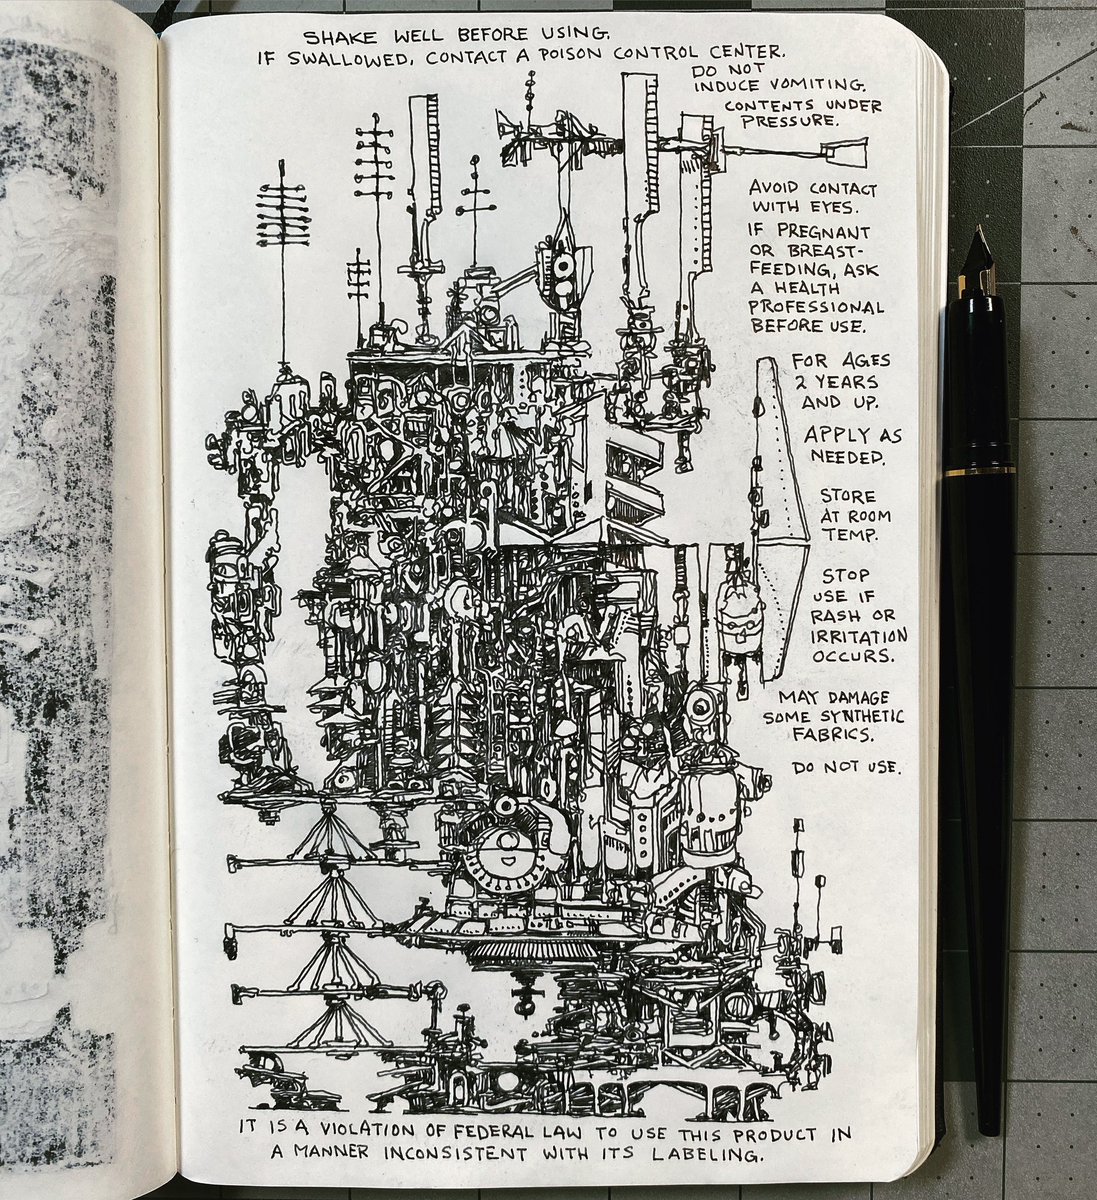 SHAKE WELL BEFORE USING.
IF SWALLOWED, CONTACT A POISON CONTROL CENTER.
DO NOT
INDUCE VOMITING.
CONTENTS UNDER
PRESSURE.
AVOID CONTACT
WITH EYES.
IF PREGNANT
OR BREAST-
FEEDING, ASK
A HEALTH
PROFESSIONAL
BEFORE USE.
FOR AGES
2 YEARS
AND UP.
APPLY AS
NEEDED.
STORE
AT ROOM
TEMP.
STOP
USE IF
RASH OR
IRRITATION
OCCURS.
MAY DAMAGE
SOME SYNTHETIC
FABRICS.
DO NOT USE.
IT IS A VIOLATION OF FEDERAL LAW TO USE THIS PRODUCT IN
A MANNER INCONSISTENT WITH ITS LABELING.